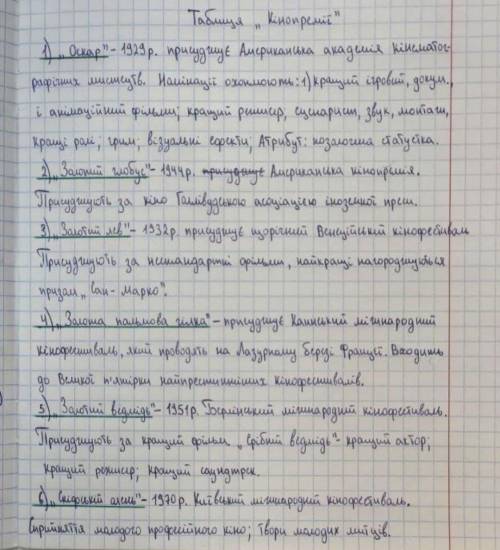 Таблиця „Кінопремії"
1) „Оскар" - 1929р. присуджує Американська академія кінематог-
рафічних мистецтв. Номінації охоплюють: 1) кращий ігровий, докум.,
і анімаційний фільми; кращий режисер, сценарист, звук, монтаж,
кращі ролі; грим; візуальні ефекти; Атрибут: позолочена статуетка.
2) „Золотий глобус" - 1944р. присуджує Американська кінопремія.
Присуджують за кіно Голлівудською асоціацією іноземної преси.
3) „Золотий лев" - 1932р. присуджує щорічний Венеційський кінофестиваль
Присуджують за нестандартні фільми, найкращі нагороджуються
призам „Сан-Марко".
4) „Золота пальмова гілка" - присуджує Каннський міжнародний
кінофестиваль, який проводять на Лазурному березі Франції. Входить
до Великої п'ятірки найпрестижніших кінофестивалів.
5) „Золотий ведмідь" - 1951р. Берлінський міжнародний кінофестиваль.
Присуджують за кращий фільм „срібний ведмідь" - кращий актор;
кращий режисер; кращий саундтрек.
6) „Скіфський олень" - 1970р. Київський міжнародний кінофестиваль.
Сприйняття молодого професійного кіно; твори молодих митців.